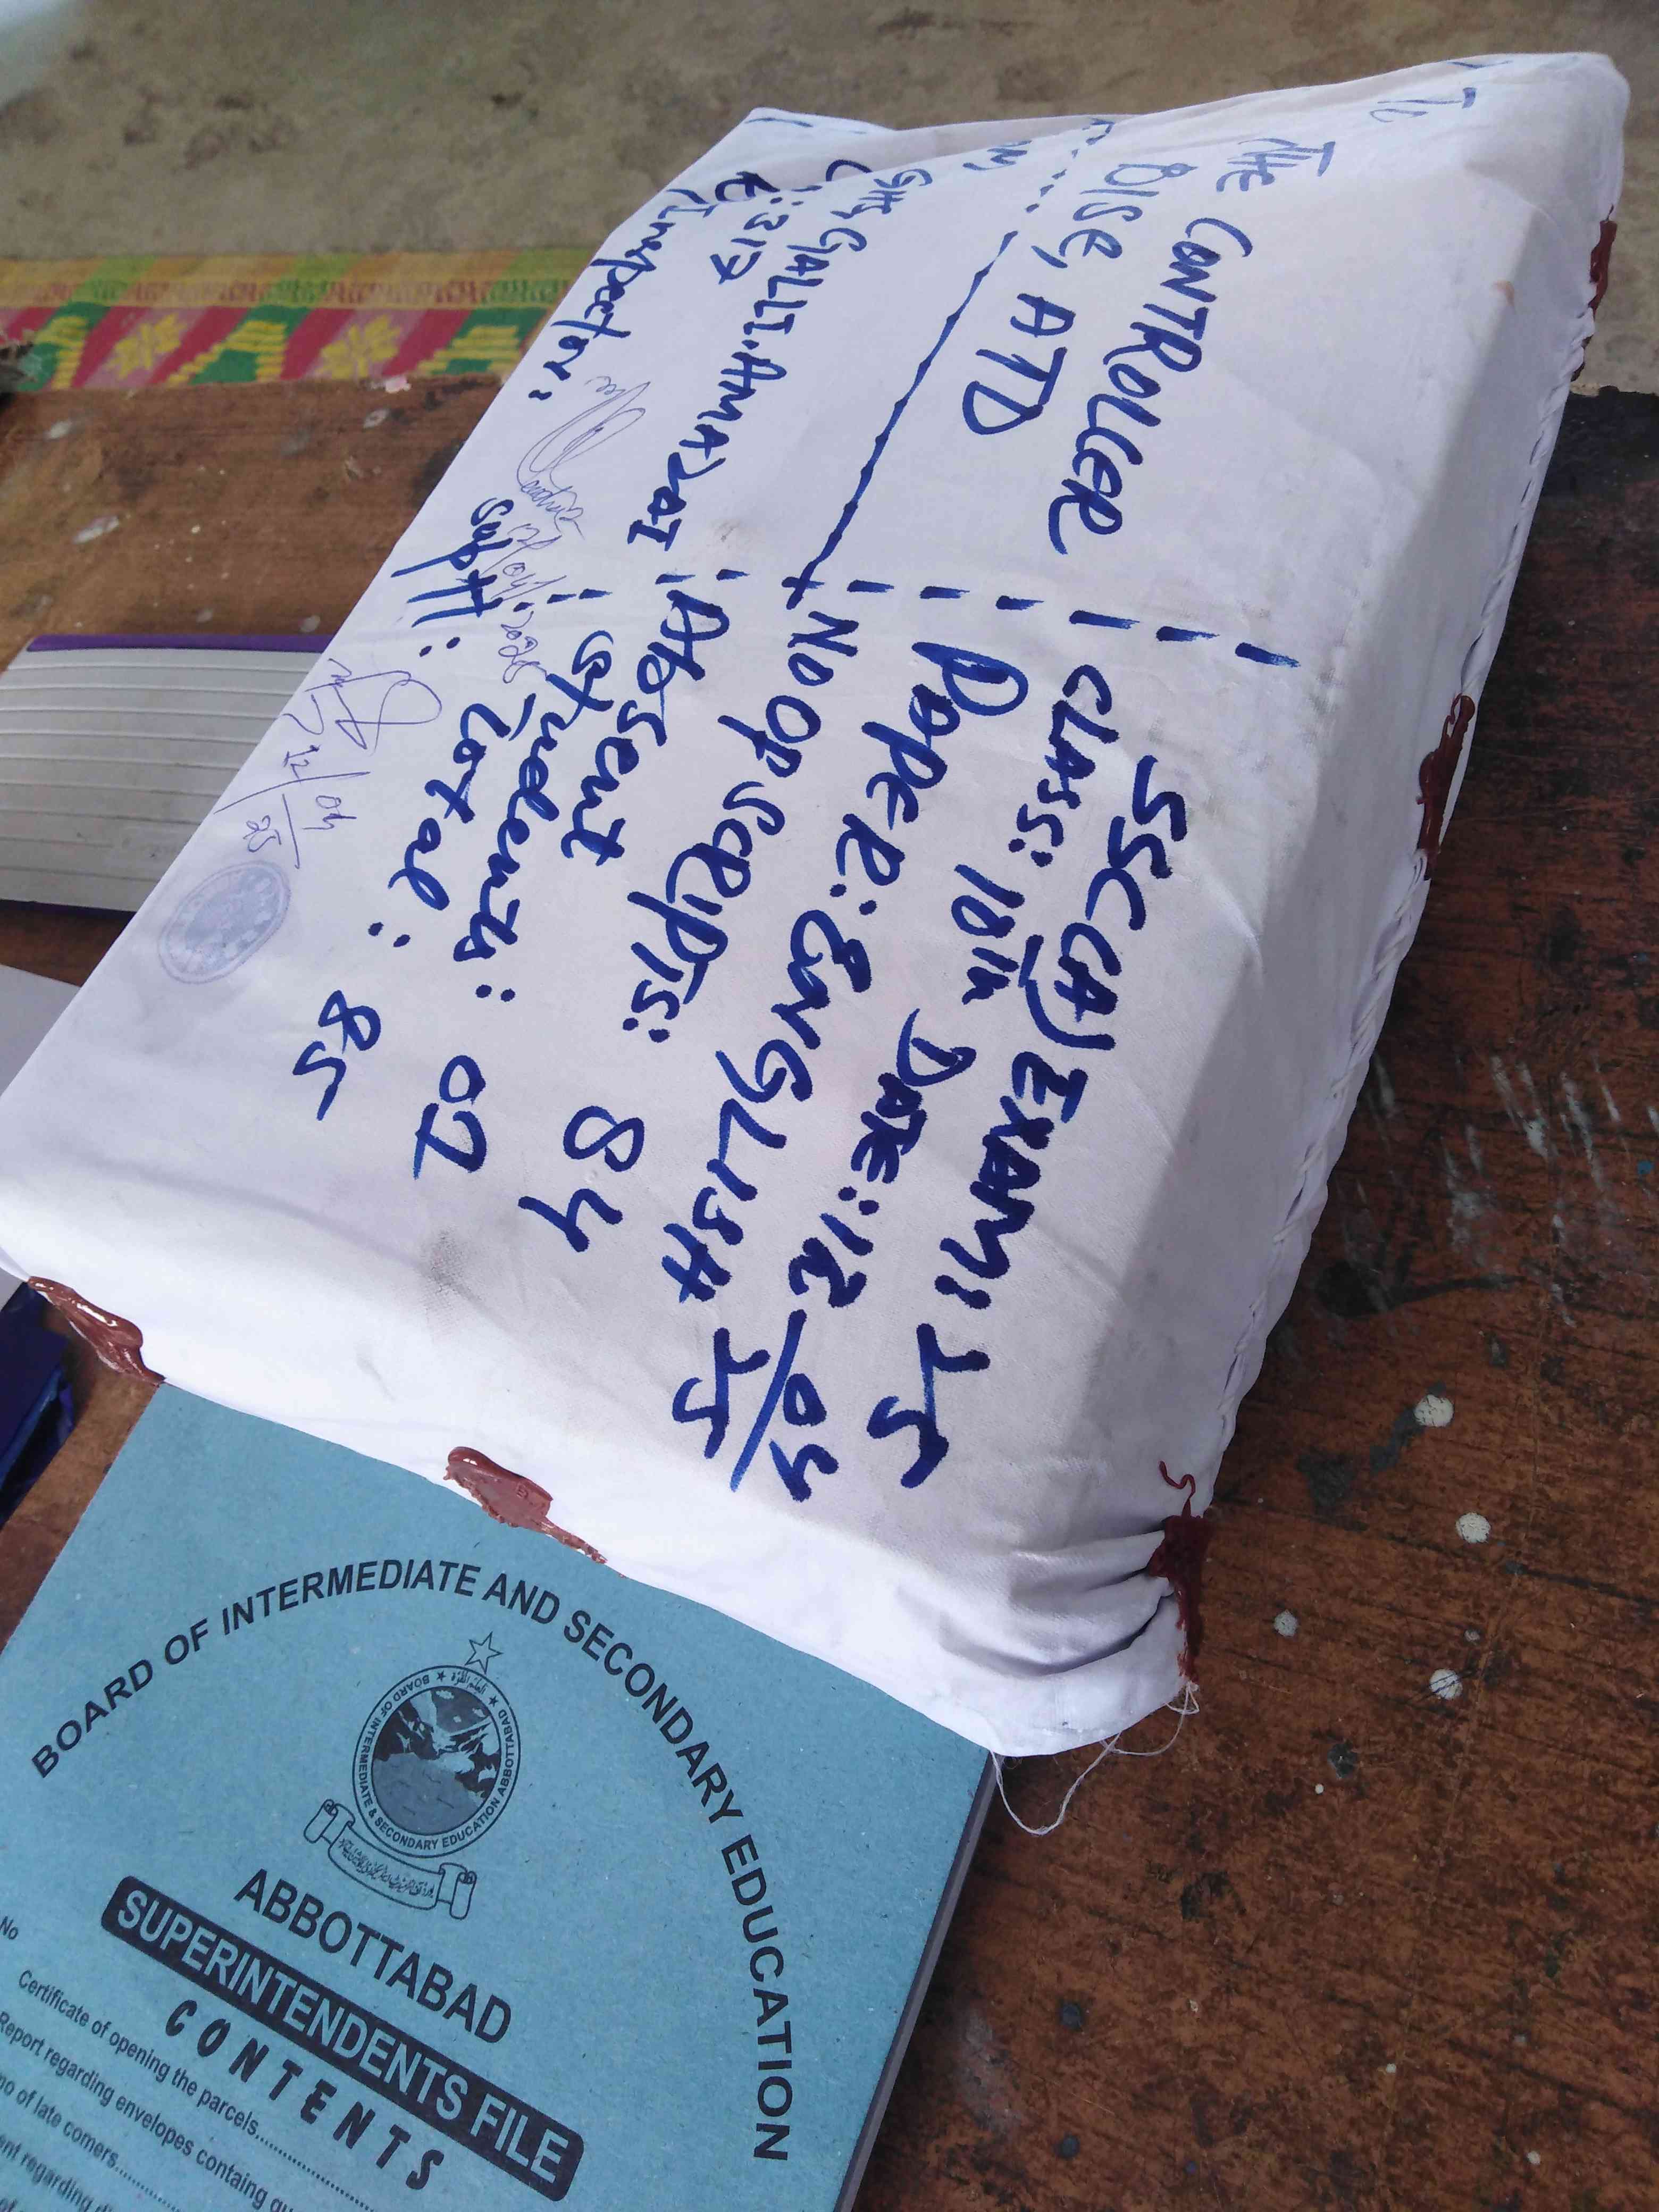 To
THE CONTROLLER
BISE, ATD
GHS GALLI.AMAZAI
C: 317
Inspector:
Supdt:
12/04/25
SSC(A) EXAM: 25
CLASS: 10th DATE: 12/04/25
PAPER: ENGLISH
NO OF SCRIPTS: 84
Absent
students: 01
Total: 85
BOARD OF INTERMEDIATE AND SECONDARY EDUCATION
BOARD OF INTERMEDIATE & SECONDARY EDUCATION ABBOTTABAD
ABBOTTABAD
SUPERINTENDENTS FILE
CONTENTS
No
Certificate of opening the parcels
Report regarding envelopes containg
of late comers
regarding